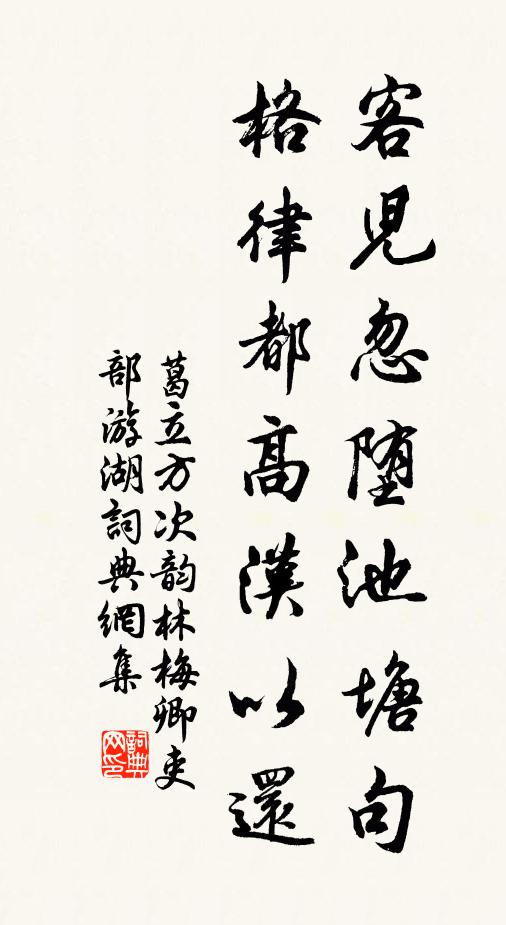 客児忽堕池塘句
格律都高漢以還
葛立方次韵林梅卿吏
部游湖詞典網集
詞典網印